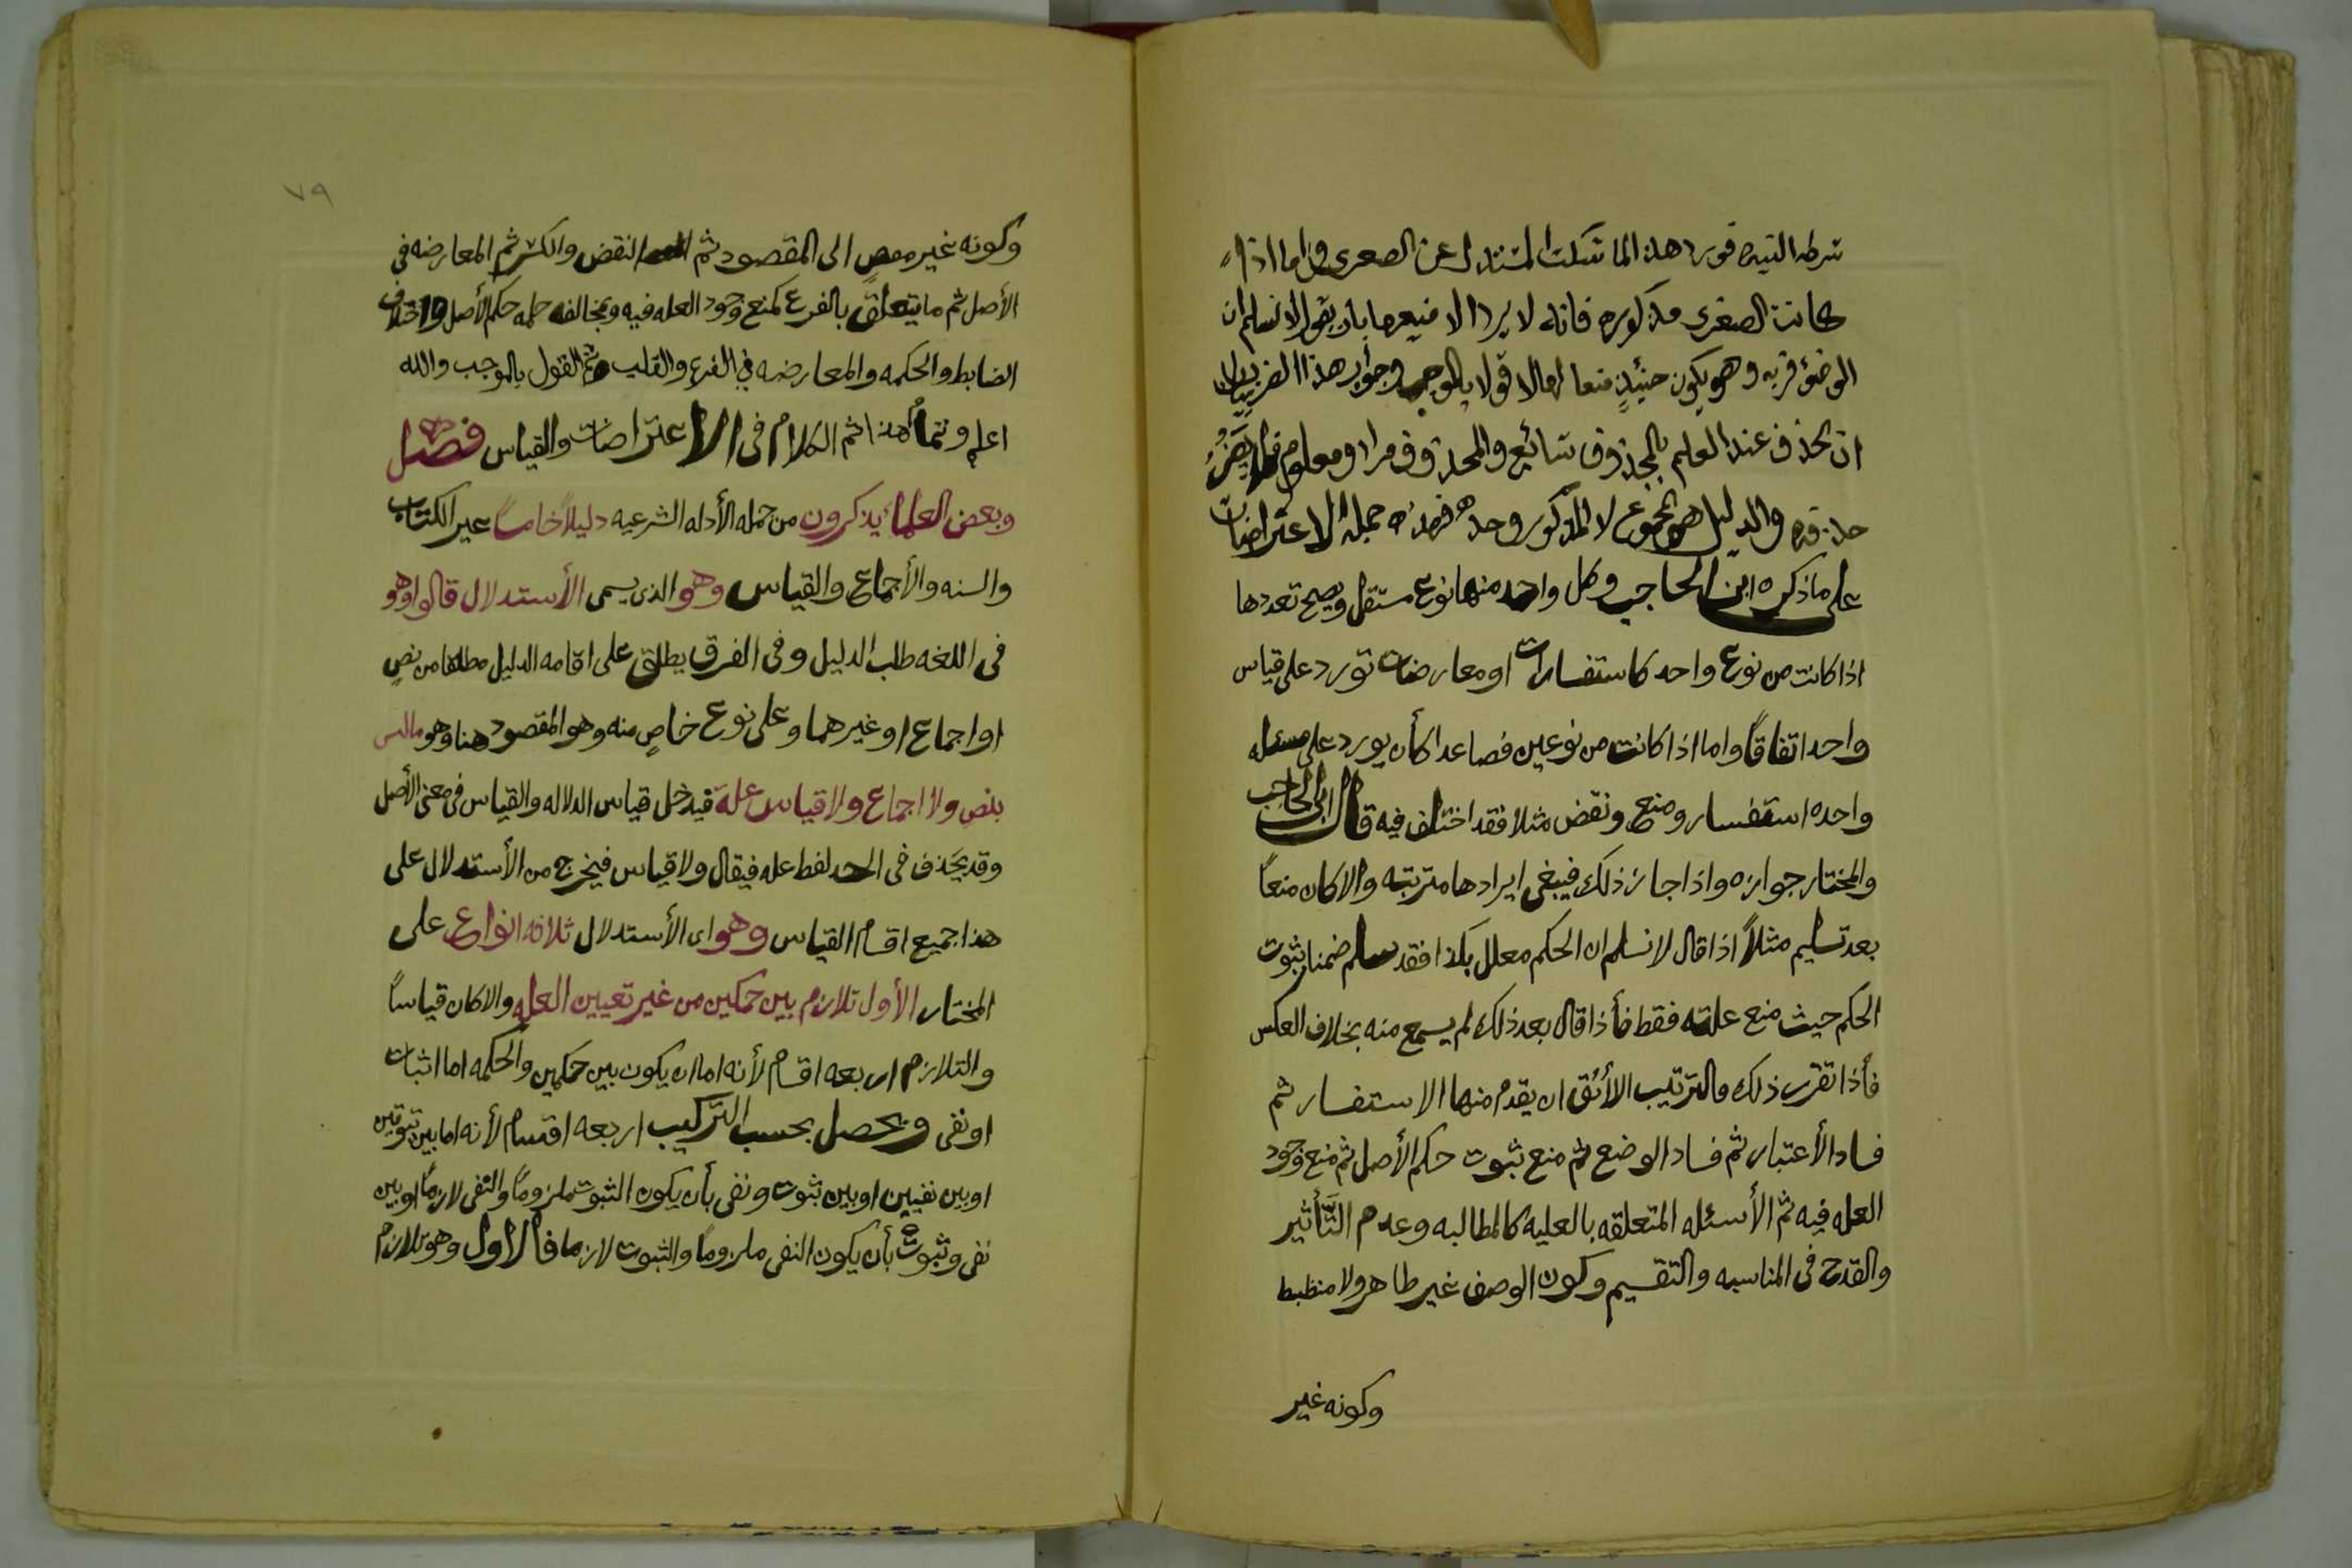 شرطه النيه فورد هذا لما سكت المستدل عن الصغرى واما اذا
كانت الصغرى مذكوره فانه لا يرد الا منعها بان يقول لا نسلم ان
الوضؤ قربه وهو يكون حينئذٍ منعا لها لا قولا بالموجب وجواب هذا الضرب
ان تحذف عند العلم بالمحذوف شائع والمحذوف مراد ومعلوم فلا يضرُ
حذفه والدليل هو المجموع لا المذكور وحده فهذه جملة الاعتراضات
على ماذكره ابن الحاجب وكل واحد منها نوع مستقل ويصح تعددها
اذا كانت من نوع واحد كاستفسارات او معارضات تورد على قياس
واحد اتفاقاً واما اذا كانت من نوعين فصاعدا كأن يورد على مسئله
واحده استفسار ومنع ونقض مثلا فقد اختلف فيه قال ابن الحاجب
والمختار جوازه واذا جاز ذلك فينبغى ايرادها مترتبه والا كان منعاً
بعد تسليم مثلاً اذا قال لا نسلم ان الحكم معلل بكذا فقد سلم ضمنا ثبوت
الحكم حيث منع علته فقط فأذا قال بعد ذلك لم يسمع منه بخلاف العكس
فأذا تقرر ذلك فالترتيب الأئق ان يقدم منها الاستفسار ثم
فساد الأعتبار ثم فساد الوضع ثم منع ثبوت حكم الأصل ثم منع وجود
العله فيه ثم الأسئله المتعلقه بالعليه كالمطالبه وعدم التَّأثير
والقدح فى المناسبه والتقسيم وكون الوصف غير ظاهر ولا منظبط
وكونه غير
٧٩
وكونه غير مفضٍ الى المقصود ثم النقض والكسر ثم المعارضه فى
الأصل ثم ما يتعلق بالفرع كمنع وجود العله فيه ومخالفه حكمه حكم الأصل واختلاف
الضابط والحكمه والمعارضه في الفرع والقلب ثم القول بالموجب والله
اعلم وتمام هذا ثم الكلام فى الاعتراضات والقياس فصل
وبعض العلماء يذكرون من جمله الأدله الشرعيه دليلاً خامساً غير الكتاب
والسنه والأجماع والقياس وهو الذى يسمى الأستدلال قالوا وهو
فى اللغه طلب الدليل وفى العرف يطلق على اقامه الدليل مطلقا من نصٍ
او اجماع او غيرهما وعلى نوع خاصٍ منه وهو المقصود هنا وهو ماليس
بنصٍ ولا اجماع ولا قياس علة فيدخل قياس الدلاله والقياس فى معنى الأصل
وقد يحَذف فى الحد لفظ عله فيقال ولا قياس فيخرج من الأستدلال على
هذا جميع اقسام القياس وهو اى الأستدلال ثلاثه انواع على
المختار الأول تلازم بين حكمين من غير تعيين العله والا كان قياساً
والتلازم اربعه اقسام لأنه اما ان يكون بين حكمين والحكمه اما اثبات
او نفى ويحصل بحسب التركيب اربعه اقسام لأنه اما بين ثبوتين
او بين نفيين او بين ثبوت ونفى بأن يكون الثبوت ملزوماً والنفى لازماً او بين
نفى وثبوت بأن يكون النفى ملزوماً والثبوت لازما فالأول وهو تلازم